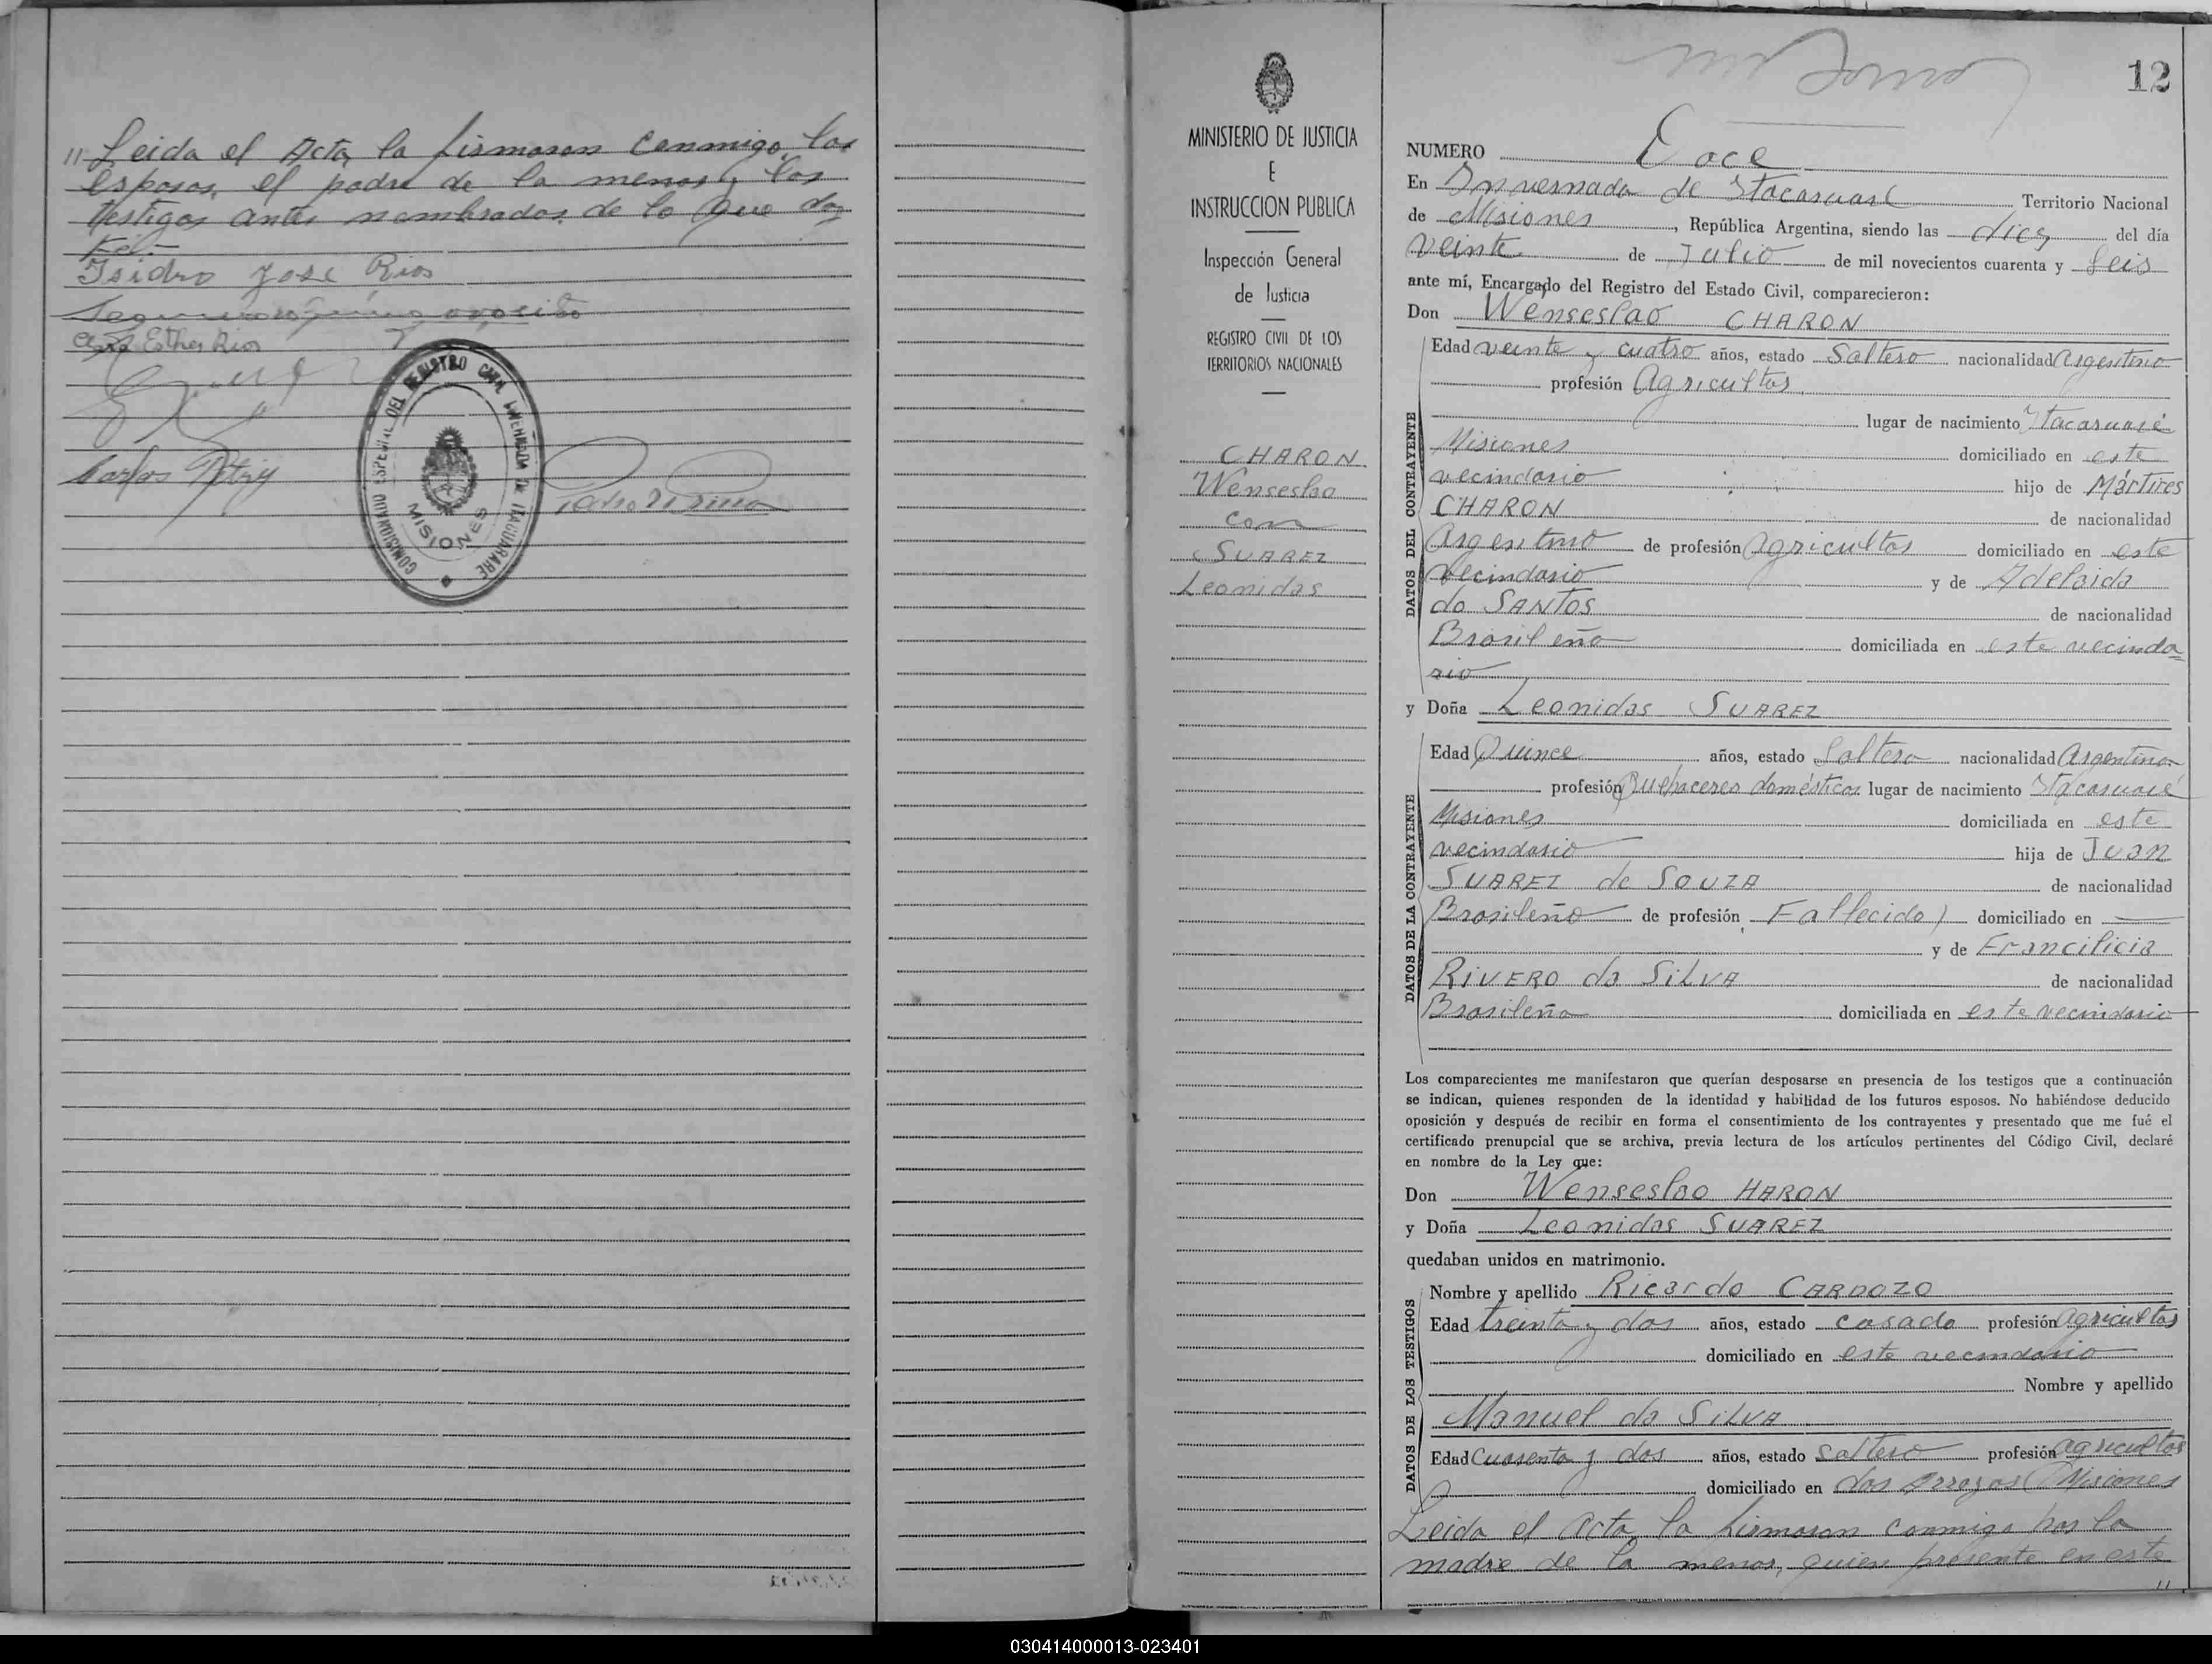 " Leida el Acta, la firmaron conmigo, los
esposos, el padre de la menor y los
testigos antes nombrados, de lo que doy
Fé.-
Isidro José Rios
Esther Rios
Carlos
COMISIONADO ESPECIAL DEL REGISTRO CIVIL INVERNADA DE ITACUARARE
MISIONES
MINISTERIO DE JUSTICIA
E
INSTRUCCION PUBLICA
Inspección General
de Justicia
REGISTRO CIVIL DE LOS
TERRITORIOS NACIONALES
CHARON
Wenseslao
con
SUAREZ
Leonidas
12
NUMERO Doce
En Invernada de Itacaruaré Territorio Nacional
de Misiones, República Argentina, siendo las diez del día
veinte de Julio de mil novecientos cuarenta y seis
ante mí, Encargado del Registro del Estado Civil, comparecieron:
Don Wenseslao CHARON
DATOS DEL CONTRAYENTE
Edad veinte y cuatro años, estado Soltero nacionalidad Argentino
profesión Agricultor
lugar de nacimiento Itacaruaré
Misiones domiciliado en este
vecindario hijo de Mártires
CHARON de nacionalidad
Argentino de profesión Agricultor domiciliado en este
vecindario y de Adelaida
do SANTOS de nacionalidad
Brasileña domiciliada en este vecinda=
rio
y Doña Leonidas SUAREZ
DATOS DE LA CONTRAYENTE
Edad Quince años, estado Soltera nacionalidad Argentina
profesión Quehaceres domésticos lugar de nacimiento Itacaruaré
Misiones domiciliada en este
vecindario hija de Juan
SUAREZ de SOUZA de nacionalidad
Brasileño de profesión Fallecido) domiciliado en
y de Francilicia
RIVERO da SILVA de nacionalidad
Brasileña domiciliada en este vecindario
Los comparecientes me manifestaron que querían desposarse en presencia de los testigos que a continuación
se indican, quienes responden de la identidad y habilidad de los futuros esposos. No habiéndose deducido
oposición y después de recibir en forma el consentimiento de los contrayentes y presentado que me fué el
certificado prenupcial que se archiva, previa lectura de los artículos pertinentes del Código Civil, declaré
en nombre de la Ley que:
Don Wenseslao HARON
y Doña Leonidas SUAREZ
quedaban unidos en matrimonio.
DATOS DE LOS TESTIGOS
Nombre y apellido Ricardo CARDOZO
Edad treinta y dos años, estado casado profesión agricultor
domiciliado en este vecindario
Nombre y apellido
Manuel da SILVA
Edad Cuarenta y dos años, estado soltero profesión agricultor
domiciliado en dos Arroyos (Misiones
Leida el Acta, la firmaron conmigo por la
madre de la menor, quien presente en este
"
030414000013-023401